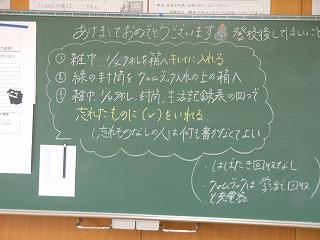 あけましておめでとうございます 登校後してほしいこと
① 雑巾、1/4ダオルを箱へキレイに入れる
② 緑の封筒をクロムブック入れの上の箱へ
③ 雑巾、1/4タオル、封筒、生活記録表の四つで
忘れたものに(✓)をいれる
(忘れものなしの人は何も書かなくてよい
・はばたき回収なし
・クロムブックは学活で回収
と充電